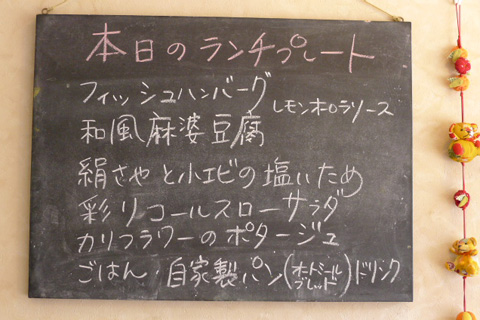 本日のランチプレート
フィッシュハンバーグ レモンホロラソース
和風麻婆豆腐
絹さやと小エビの塩いため
彩りコールスローサラダ
カリフラワーのポタージュ
ごはん・自家製パン(オートミールブレッド)ドリンク